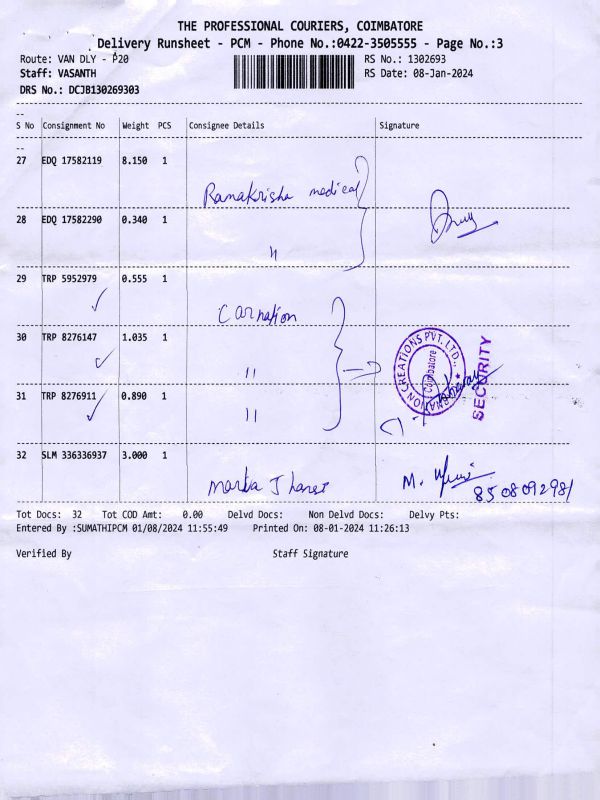 THE PROFESSIONAL COURIERS, COIMBATORE
Delivery Runsheet - PCM - Phone No.:0422-3505555 - Page No.:3
Route: VAN DLY - P20
RS No.: 1302693
Staff: VASANTH
RS Date: 08-Jan-2024
DRS No.: DCJB130269303
S No Consignment No Weight PCS Consignee Details Signature
27 EDQ 17582119 8.150 1
Ramakrisha medical
28 EDQ 17582290 0.340 1
"
29 TRP 5952979 0.555 1
Carnation
30 TRP 8276147 1.035 1
"
CARNATION CREATIONS PVT. LTD.,
Coimbatore
SECURITY
31 TRP 8276911 0.890 1
"
32 SLM 336336937 3.000 1
M.
8508092981
Tot Docs: 32 Tot COD Amt: 0.00 Delvd Docs: Non Delvd Docs: Delvy Pts:
Entered By :SUMATHIPCM 01/08/2024 11:55:49 Printed On: 08-01-2024 11:26:13
Verified By Staff Signature